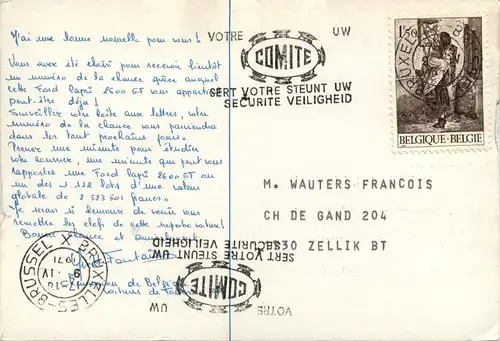 J'ai une bonne nouvelle pour vous !
Vous avez été choisi pour recevoir bientôt
un numéro de la chance grâce auquel
cette Ford Capri 2600 GT vous appartient
peut-être déjà !
Surveillez votre boîte aux lettres, votre
numéro de la chance vous parviendra
dans les tout prochains jours.
Prenez une minute pour étudier
votre courrier, une minute qui peut vous
rapporter une Ford Capri 2600 GT ou
un des 1.112 lots d'une valeur
globale de 2 523 501 francs.
Je serai si heureux de venir vous
remettre les clefs de cette superbe voiture !
Bonne chance et
Champion de Belgique
voitures de
VOTRE UW
COMITE
SERT VOTRE STEUNT UW
SECURITE VEILIGHEID
1,50
BRUXEL
BELGIQUE-BELGIE
M. WAUTERS FRANCOIS
CH DE GAND 204
ZELLIK BT
SERT VOTRE STEUNT UW
SECURITE VEILIGHEID
COMITE
VOTRE UW
BRUSSEL X BRUXELLES
1971
IV